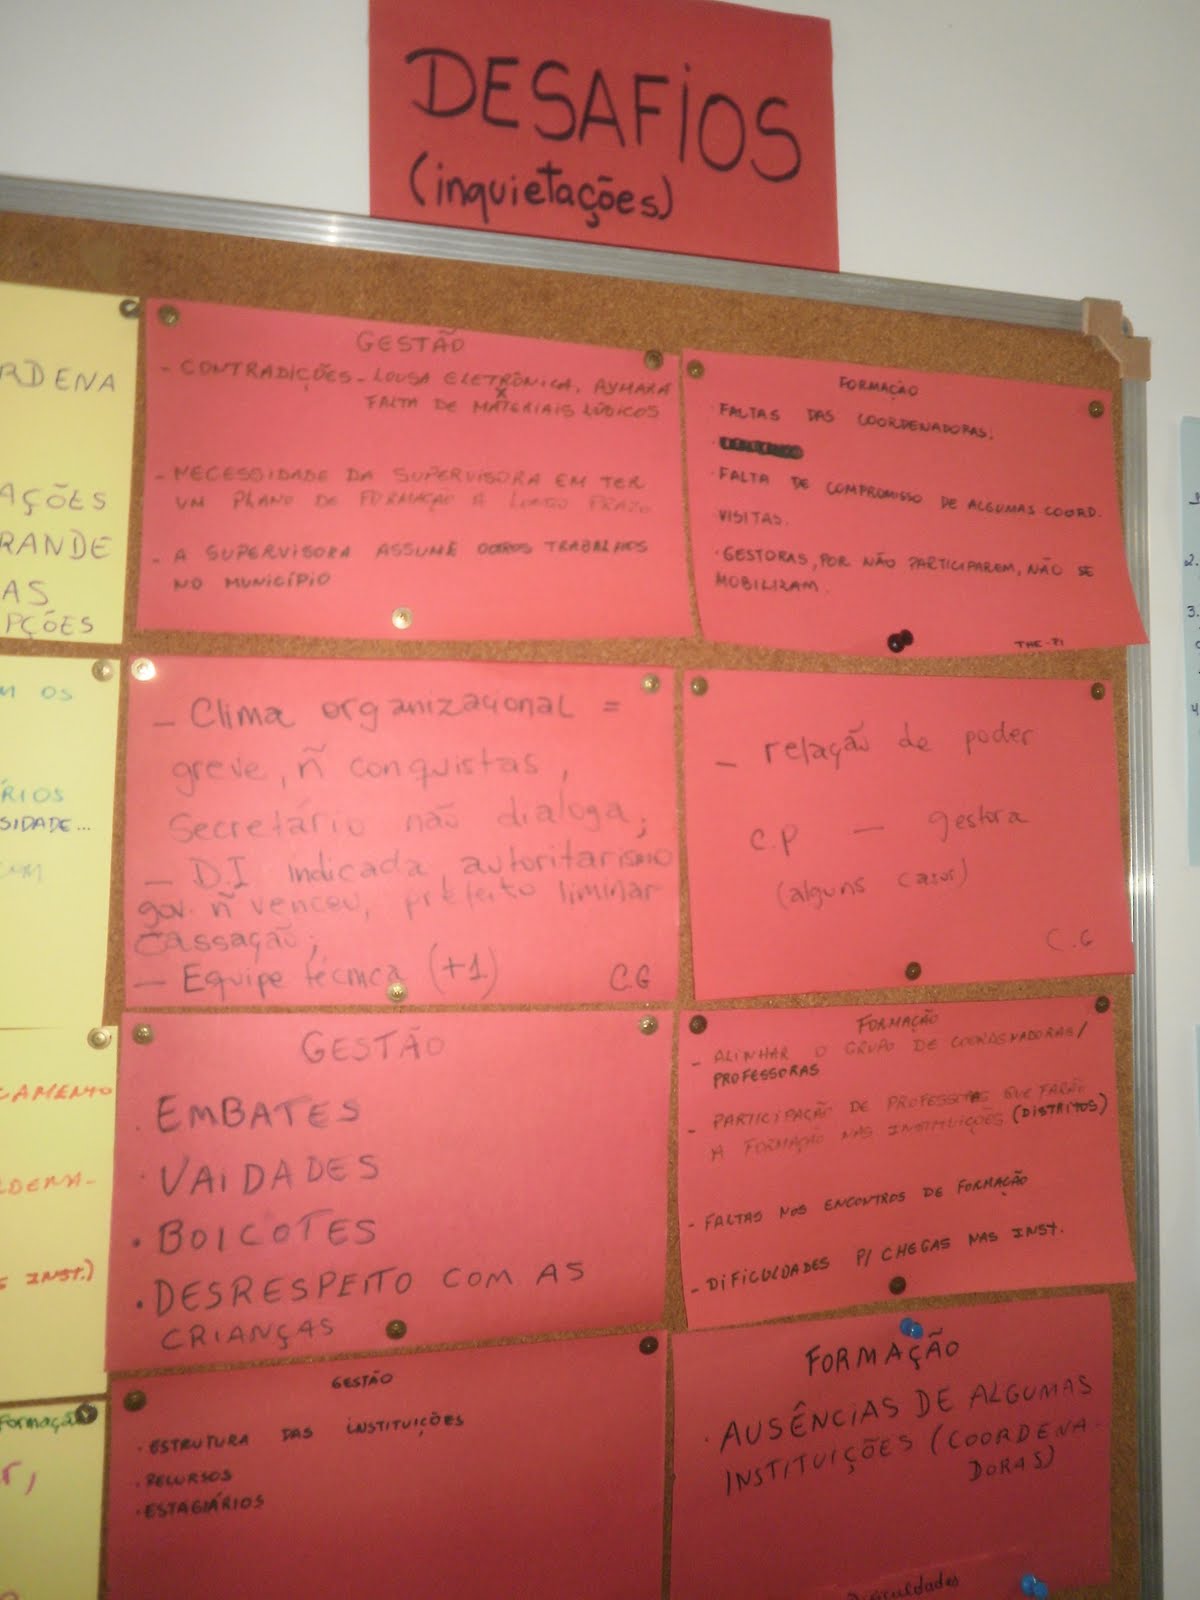 DESAFIOS
(inquietações)
RDENA
AÇÕES
RANDE
AS
PÇÕES
GESTÃO
- CONTRADIÇÕES - LOUSA ELETRÔNICA, AYMARA
X
FALTA DE MATERIAIS LÚDICOS
- NECESSIDADE DA SUPERVISORA EM TER
UM PLANO DE FORMAÇÃO A LONGO PRAZO
- A SUPERVISORA ASSUME OUTROS TRABALHOS
NO MUNICÍPIO
FORMAÇÃO
· FALTAS DAS COORDENADORAS;
· FALTA DE COMPROMISSO DE ALGUMAS COORD.
VISITAS.
· GESTORAS, POR NÃO PARTICIPAREM, NÃO SE
MOBILIZAM.
THE-PI
M OS
ÁRIOS
SIDADE...
COM
- Clima organizacional =
greve, ñ conquistas,
Secretário não dialoga;
- D.I indicada, autoritarismo
gov. ñ venceu, prefeito liminar
cassação;
- Equipe técnica (+1) C.G
- relação de poder
C.P - gestora
(alguns casos)
C.G
CAMENTO
RDENA-
S INST.)
GESTÃO
· EMBATES
· VAIDADES
· BOICOTES
· DESRESPEITO COM AS
CRIANÇAS
FORMAÇÃO
- ALINHAR O GRUPO DE COORDENADORAS/
PROFESSORAS
- PARTICIPAÇÃO DE PROFESSORAS QUE FARÃO
A FORMAÇÃO NAS INSTITUIÇÕES (DISTRITOS)
- FALTAS NOS ENCONTROS DE FORMAÇÃO
- DIFICULDADES P/ CHEGAS NAS INST.
Formação
r,
GESTÃO
· ESTRUTURA DAS INSTITUIÇÕES
· RECURSOS
· ESTAGIÁRIOS
FORMAÇÃO
· AUSÊNCIAS DE ALGUMAS
INSTITUIÇÕES (COORDENA-
DORAS)
Dificuldades
2.
3.
4.